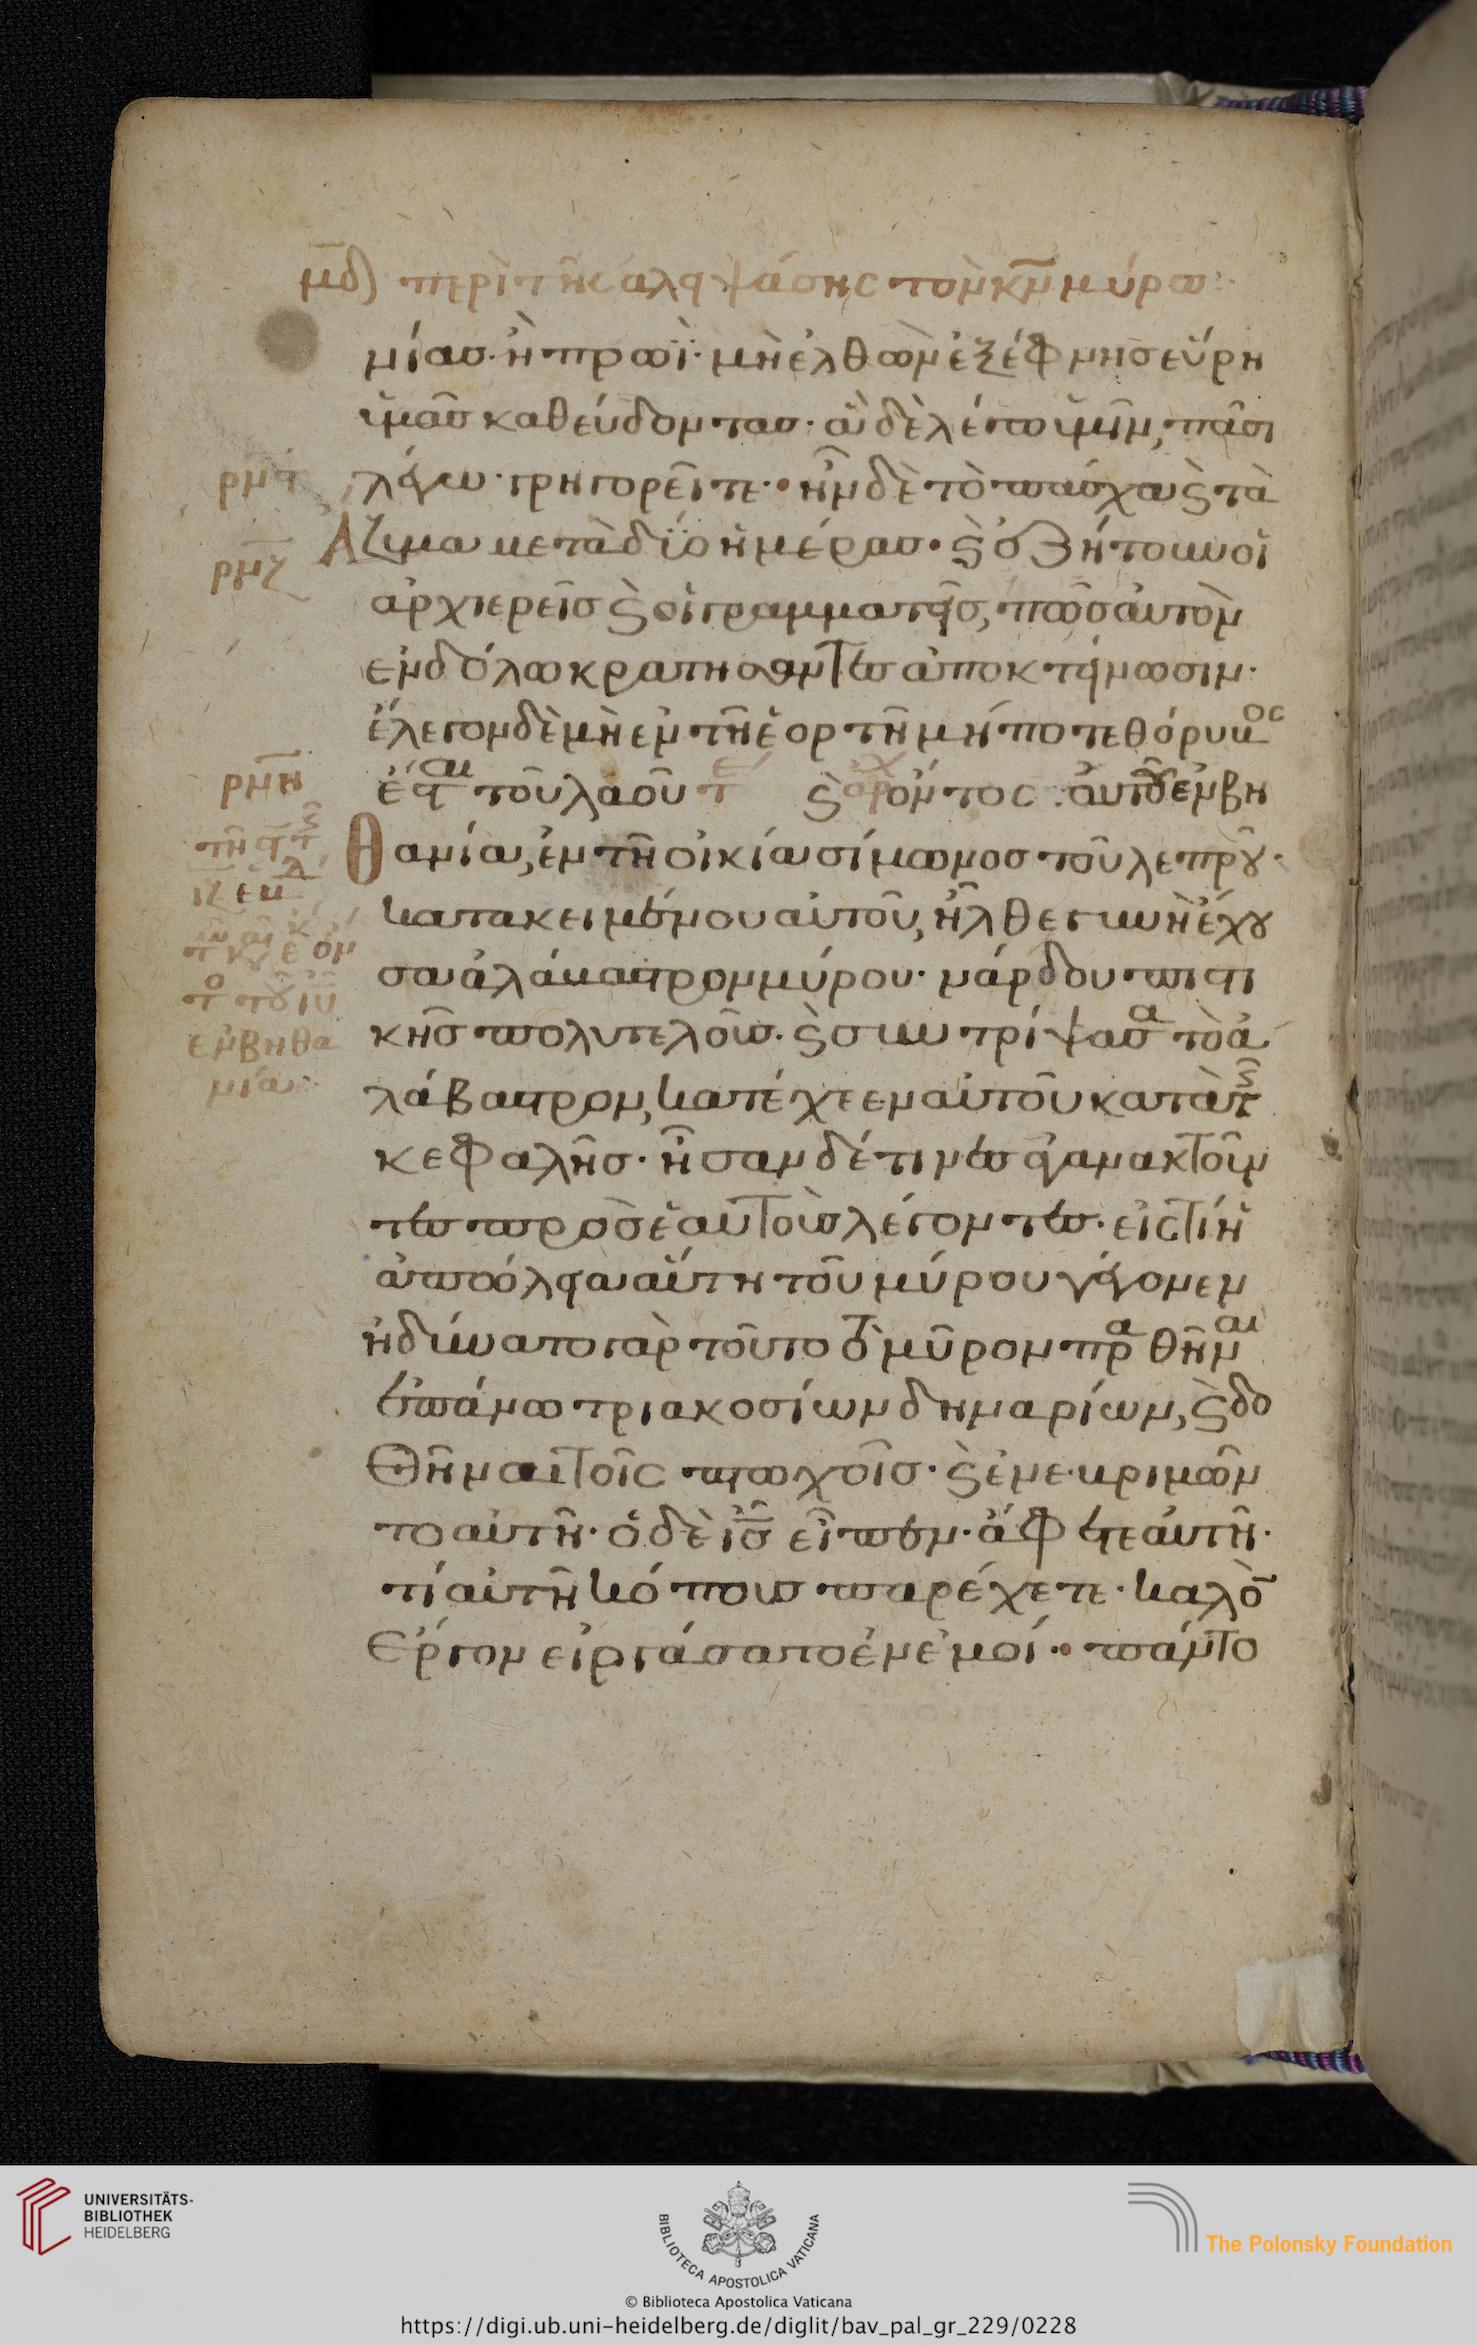 μδ) περὶ τῆς ἀλειψάσης τὸν κν μύρω:
μίας· ἢ πρωΐ· μὴ ἐλθὼν ἐξέφνης εὕρη
ὑμᾶς καθεύδοντας· ἃ δὲ λέγω ὑμῖν, πᾶσι
λέγω· γρηγορεῖτε· ἦν δὲ τὸ πάσχα ϗ τὰ
Ἄζυμα μετὰ δύο ἡμέρας· ϗ ἐζήτουν οἱ
ἀρχιερεῖς ϗ οἱ γραμματεῖς, πῶς αὐτὸν
ἐν δόλω κρατήσαντες ἀποκτείνωσιν·
ἔλεγον δὲ μὴ ἐν τῆ ἑορτῆ μήποτε θόρυβος
ἔσται τοῦ λαοῦ τε ϗ ἀρχ ὄντος αὐτοῦ ἐν βη
Θανία, ἐν τῆ οἰκία σίμωνος τοῦ λεπροῦ·
κατακειμένου αὐτοῦ, ἦλθε γυνὴ ἔχου
σα ἀλάβαστρον μύρου· νάρδου πιστι
κῆς πολυτελοῦς· ϗ συντρίψασα τὸ ἀ
λάβαστρον, κατέχεεν αὐτοῦ κατὰ τῆς
κεφαλῆς· ἦσαν δέ τινες ἀγανακτοῦν
τες πρὸς ἑαυτοὺς λέγοντες· εἰς τί ἡ
ἀπώλεια αὕτη τοῦ μύρου γέγονεν
ἠδύνατο γὰρ τοῦτο τὸ μῦρον πραθῆναι
ἐπάνω τριακοσίων δηναρίων, ϗ δο
Θῆναι τοῖς πτωχοῖς· ϗ ἐνεβριμῶν
το αὐτῆ· ὁ δὲ ις εἶπεν· ἄφετε αὐτή·
τί αὐτῆ κόπους παρέχετε· καλὸ
Ἔργον εἰργάσατο ἐν ἐμοί· πάντο
ρμς
ρμζ
ρμη
ἐν βηθα
νία:
UNIVERSITÄTS-
BIBLIOTHEK
HEIDELBERG
BIBLIOTECA APOSTOLICA VATICANA
The Polonsky Foundation
© Biblioteca Apostolica Vaticana
https://digi.ub.uni-heidelberg.de/diglit/bav_pal_gr_229/0228